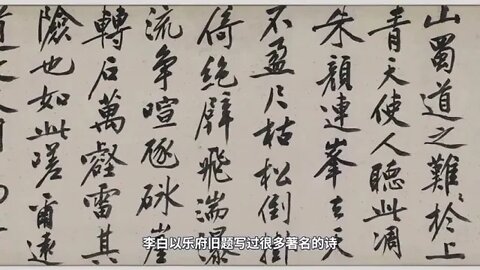 山蜀道之難〻於上
青天使人聽此凋
朱顏連峯去天
不盈尺枯松倒掛
倚絶壁飛湍瀑
流争喧豗砯崖
轉石萬壑雷其
險也如此嗟爾遠
道之人
李白以乐府旧题写过很多著名的诗